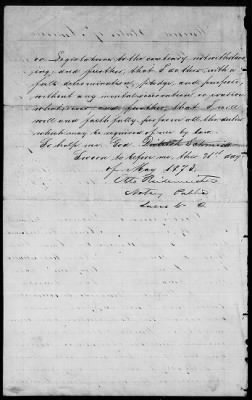 or Legislature to the contrary notwithstand
ing, and further, that I do this with a
full determination, pledge, and purpose,
without any mental reservation or evasion
whatsoever and further that I will
well and faithfully perform all the duties
which may be required of me by law.
So help me God Schmidt
Sworn to before me this 21st day
of May 1873.
Otto
Notary Public